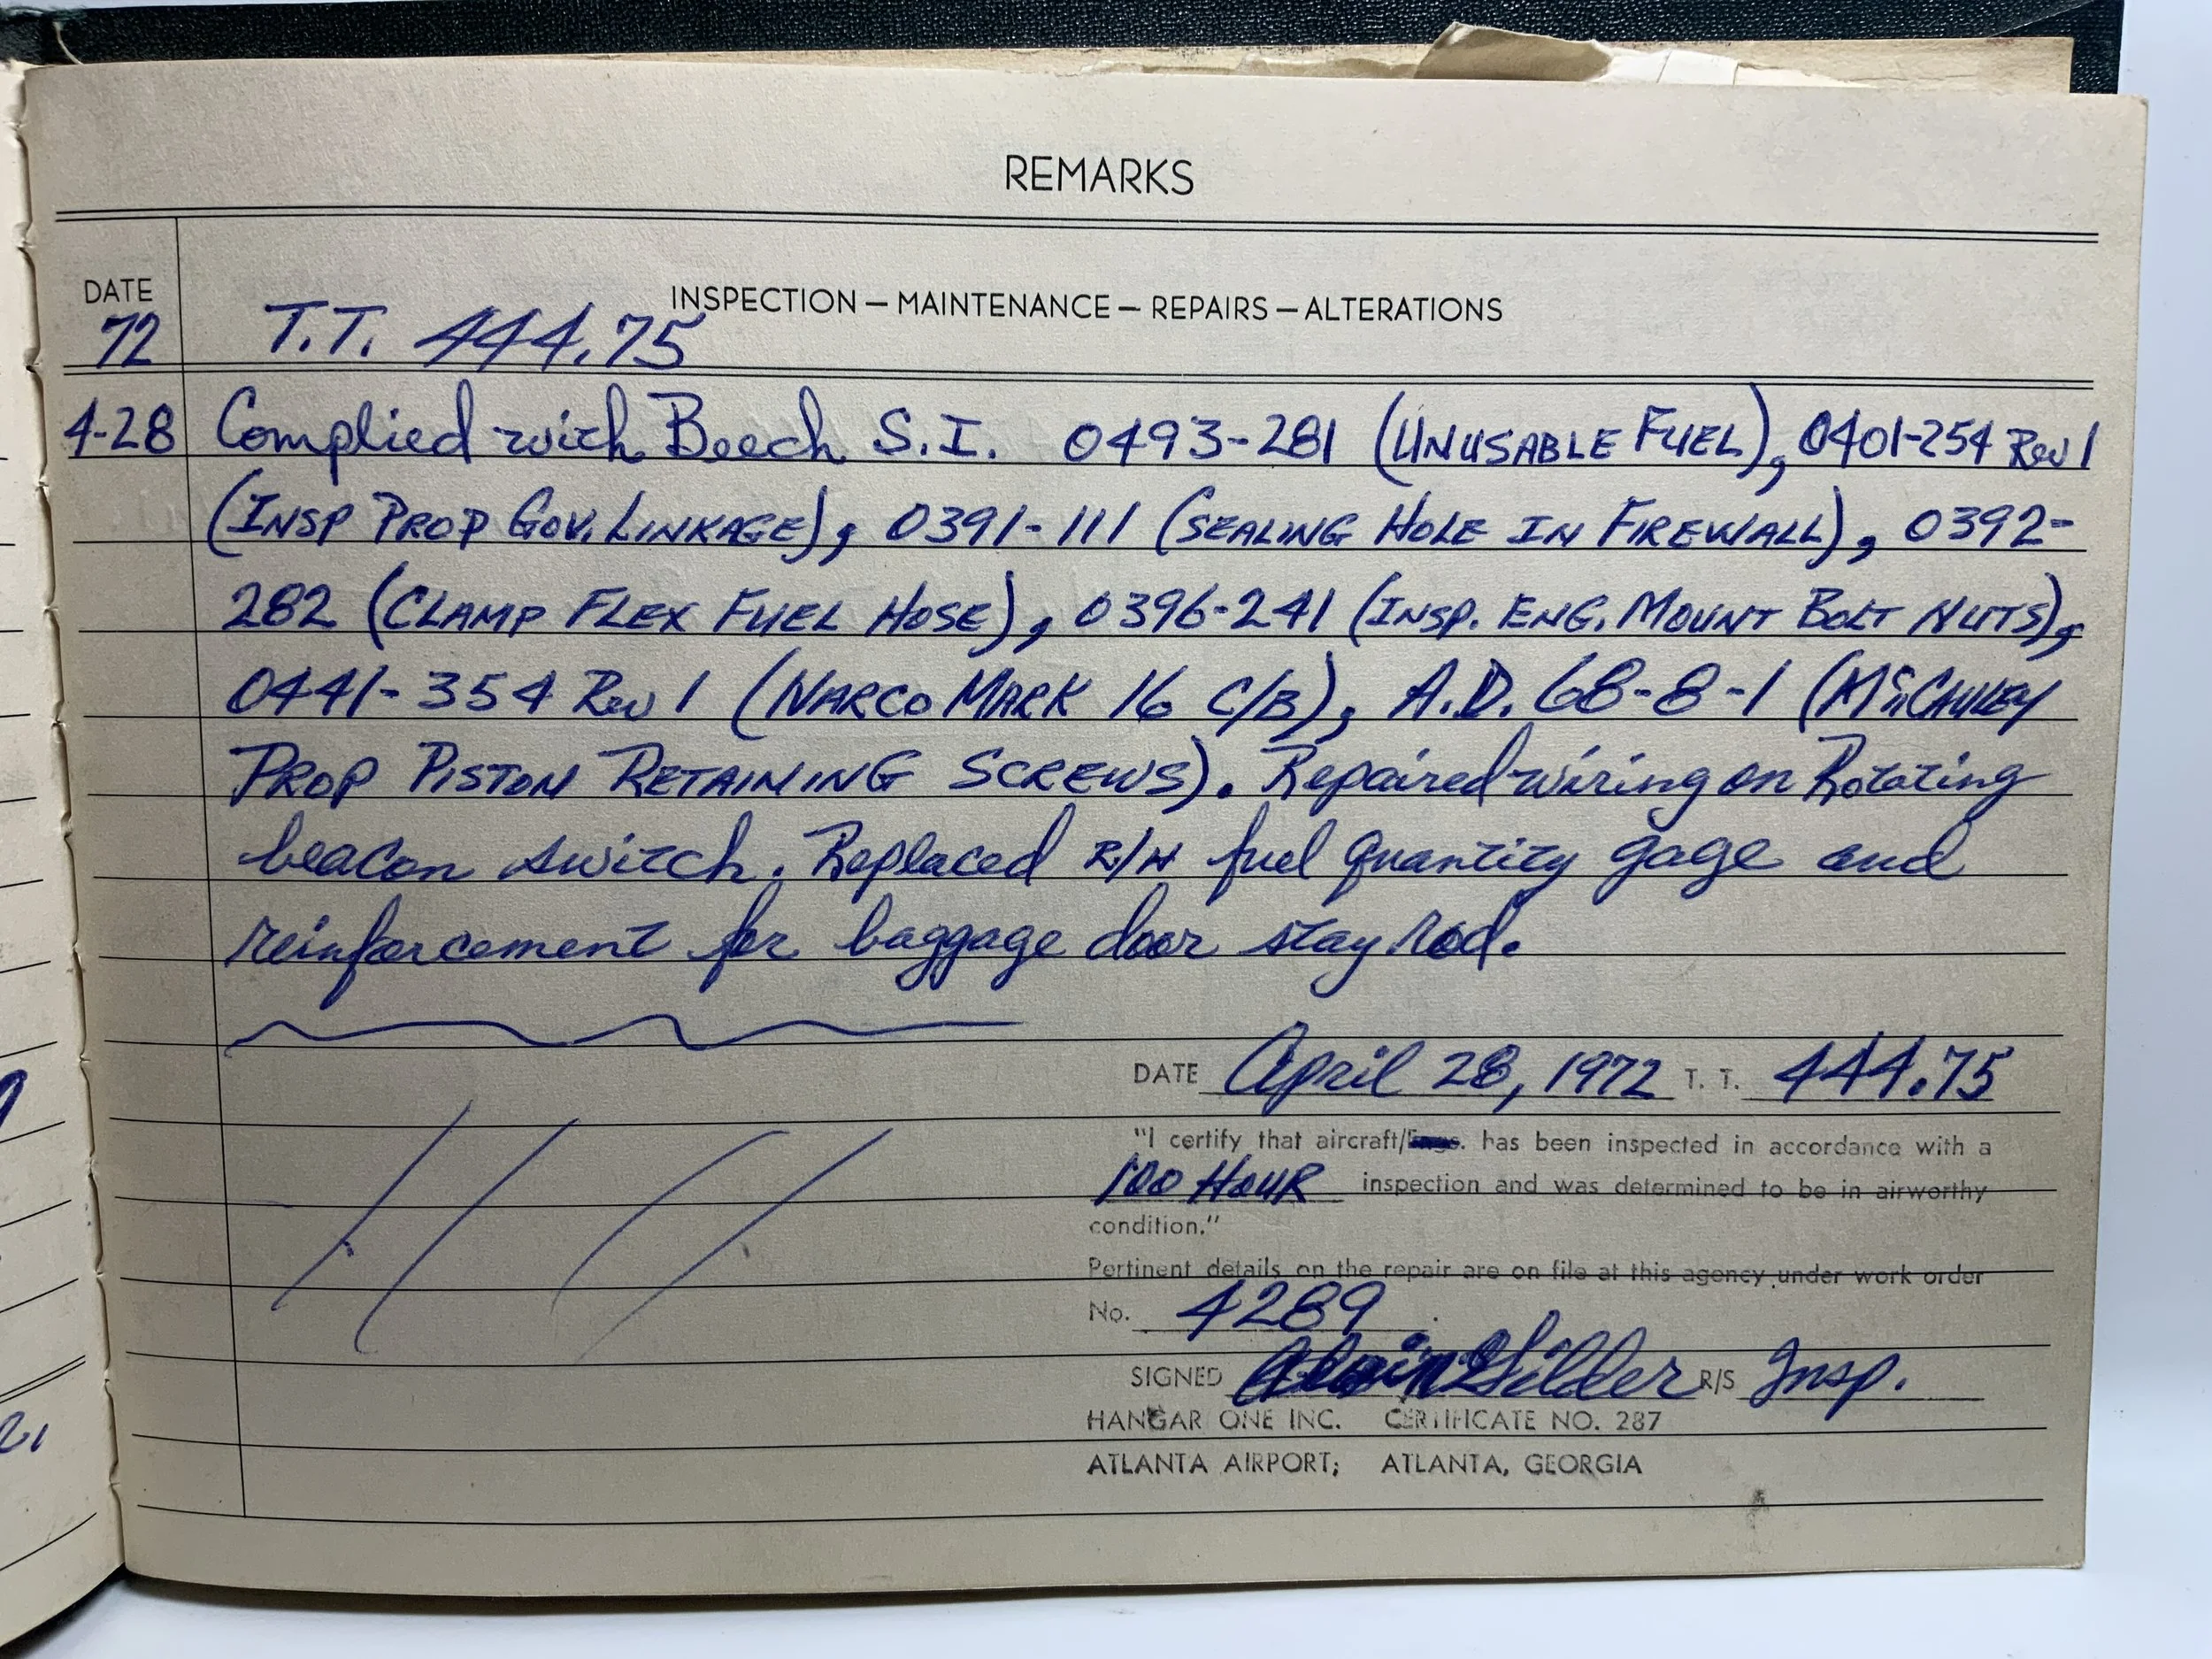 REMARKS
DATE
INSPECTION — MAINTENANCE — REPAIRS — ALTERATIONS
72 T.T. 444.75
4-28 Complied with Beech S.I. 0493-281 (UNUSABLE FUEL), 0401-254 Rev 1
(INSP PROP GOV. LINKAGE), 0391-111 (SEALING HOLE IN FIREWALL), 0392-
282 (CLAMP FLEX FUEL HOSE), 0396-241 (INSP. ENG. MOUNT BOLT NUTS),
0441-354 Rev 1 (NARCO MARK 16 C/B), A.D. 68-8-1 (McCAULEY
PROP PISTON RETAINING SCREWS). Repaired wiring on Rotating
beacon switch. Replaced R/H fuel quantity gage and
reinforcement for baggage door stay rod.
DATE April 28, 1972 T. T. 444.75
"I certify that aircraft/ has been inspected in accordance with a
100 HOUR inspection and was determined to be in airworthy
condition."
Pertinent details on the repair are on file at this agency under work order
No. 4289
SIGNED Gilder R/S Insp.
HANGAR ONE INC. CERTIFICATE NO. 287
ATLANTA AIRPORT; ATLANTA, GEORGIA